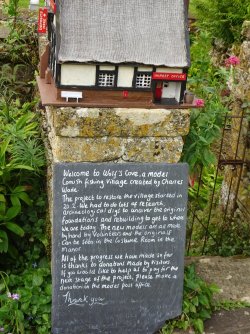 POST OFFICE
Welcome to Wolf's Cove, a model
Cornish fishing village created by Charles
Wade.
The project to restore the village started in
2010. We had to do lots of research,
archaeological digs to uncover the original
foundations and rebuilding to get to where
we are today. The new models are all made
by hand by Volunteers and the original
can be seen in the Costume Room in the
Manor
All of the progress we have made so far
is thanks to donations made by visitors
If you would like to help us to pay for the
next stage of the project, Please make a
donation in the model post office.
Thank you